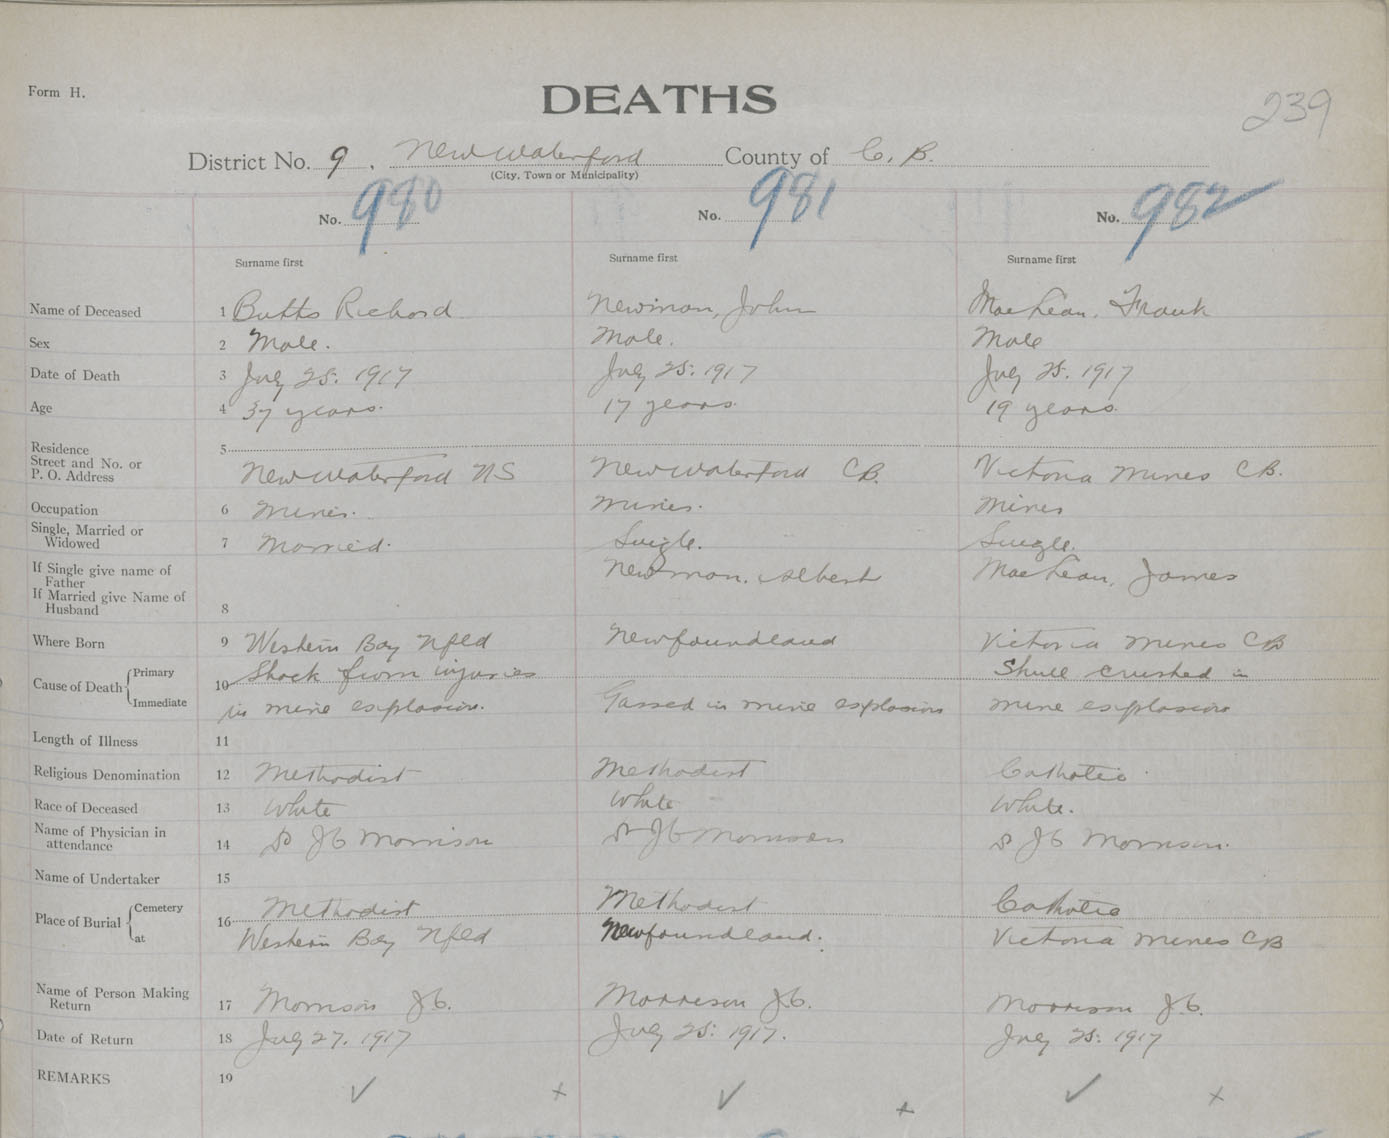 Form H.
DEATHS
239
District No. 9, New Waterford County of C. B.
(City, Town or Municipality)
No. 980 No. 981 No. 982
Surname first Surname first Surname first
Name of Deceased 1 Butts Richard Newman, John MacLean, Frank
Sex 2 Male. Male. Male
Date of Death 3 July 25. 1917 July 25. 1917 July 25. 1917
Age 4 37 years. 17 years. 19 years.
Residence 5
Street and No. or
P. O. Address New Waterford NS New Waterford CB. Victoria Mines CB.
Occupation 6 Miner. Miner. Miner
Single, Married or
Widowed 7 Married. Single. Single.
If Single give name of
Father Newman, Albert MacLean, James
If Married give Name of
Husband 8
Where Born 9 Western Bay Nfld Newfoundland Victoria Mines CB
Cause of Death Primary 10 Shock from injuries Skull crushed in
Immediate in mine explosion. Gassed in mine explosion mine explosion
Length of Illness 11
Religious Denomination 12 Methodist Methodist Catholic
Race of Deceased 13 White White White.
Name of Physician in
attendance 14 Dr JC Morrison Dr JC Morrison Dr JC Morrison.
Name of Undertaker 15
Place of Burial Cemetery 16 Methodist Methodist Catholic
at Western Bay Nfld Newfoundland. Victoria Mines CB
Name of Person Making
Return 17 Morrison JC. Morrison JC. Morrison JC.
Date of Return 18 July 27. 1917 July 25. 1917. July 25. 1917
REMARKS 19